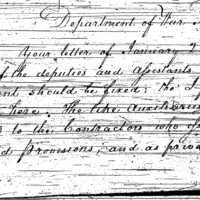 Department of War
Your letter of January 2
of the deputies and assistants
ent should be fixed; the
here. The like Auxiliaries
to the Contractors who
d Provisions, and as priva